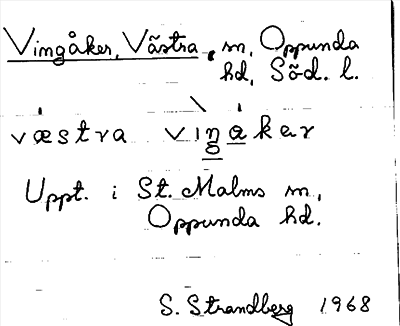 Vingåker, Västra, sn, Oppunda
hd, Söd. l.
væstra viŋåkar
Uppt. i St. Malms sn,
Oppunda hd.
S. Strandberg 1968